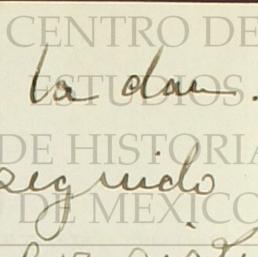 CENTRO DE
la dan.
ESTUDIOS
DE HISTORIA
seguido
DE MEXICO